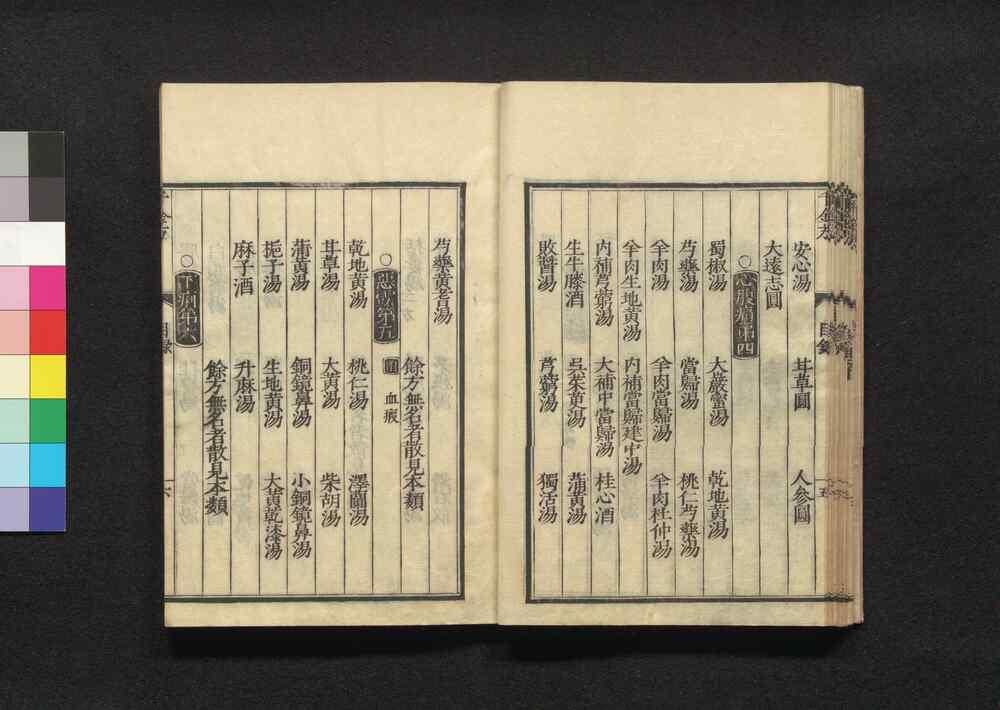 安心湯 甘草圓 人參圓
大遠志圓
○心腹痛第四
蜀椒湯 大巖蜜湯 乾地黄湯
芍藥湯 當歸湯 桃仁芍藥湯
羊肉湯 羊肉當歸湯 羊肉杜仲湯
羊肉生地黄湯 内補當歸建中湯
内補芎藭湯 大補中當歸湯 桂心酒
生牛膝酒 吳茱萸湯 蒲黄湯
敗醬湯 芎藭湯 獨活湯
芍藥黄耆湯
餘方無名者散見本類
○惡露第五 血瘕
乾地黄湯 桃仁湯 澤蘭湯
甘草湯 大黄湯 柴胡湯
蒲黄湯 銅鏡鼻湯 小銅鏡鼻湯
梔子湯 生地黄湯 大黄乾漆湯
麻子酒 升麻湯
餘方無名者散見本類
○下痢第六
目錄